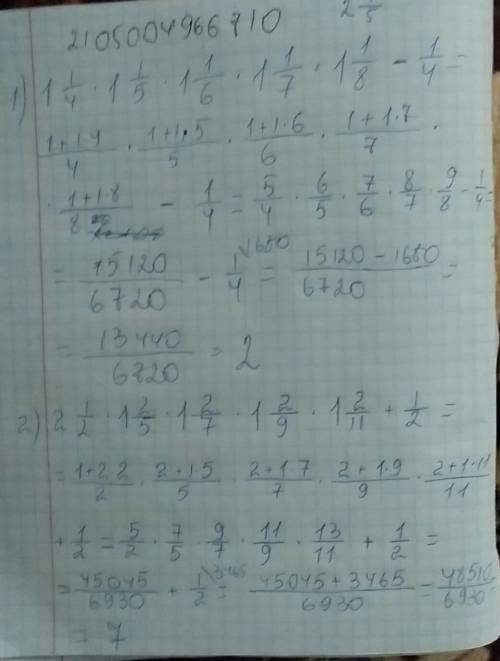 2105004966710
2 1/5
1) 1 1/4 · 1 1/5 · 1 1/6 · 1 1/7 · 1 1/8 - 1/4 =
(1+1·4)/4 · (1+1·5)/5 · (1+1·6)/6 · (1+1·7)/7 ·
· (1+1·8)/8 - 1/4 = 5/4 · 6/5 · 7/6 · 8/7 · 9/8 - 1/4 =
= 15120/6720 - 1/4 \1680 = (15120-1680)/6720 =
= 13440/6820 = 2
2) 2 1/2 · 1 2/5 · 1 2/7 · 1 2/9 · 1 2/11 + 1/2 =
= (1+2 2)/2 · (2+1 5)/5 · (2+1 7)/7 · (2+1·9)/9 · (2+1·11)/11
+ 1/2 = 5/2 · 7/5 · 9/7 · 11/9 · 13/11 + 1/2 =
= 45045/6930 + 1/2 \3465 = (45045+3465)/6930 = 48510/6930 =
= 7